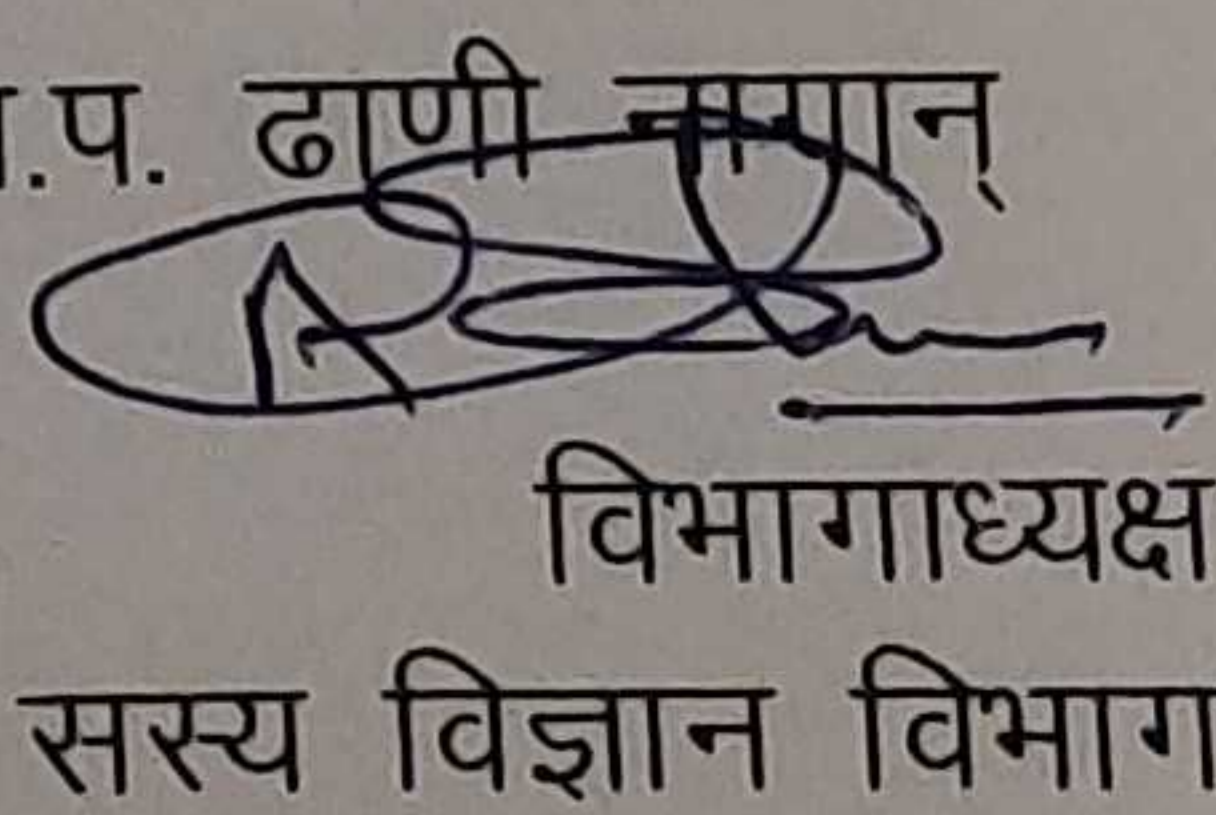 .प. ढाणी
विभागाध्यक्ष
सस्य विज्ञान विभाग